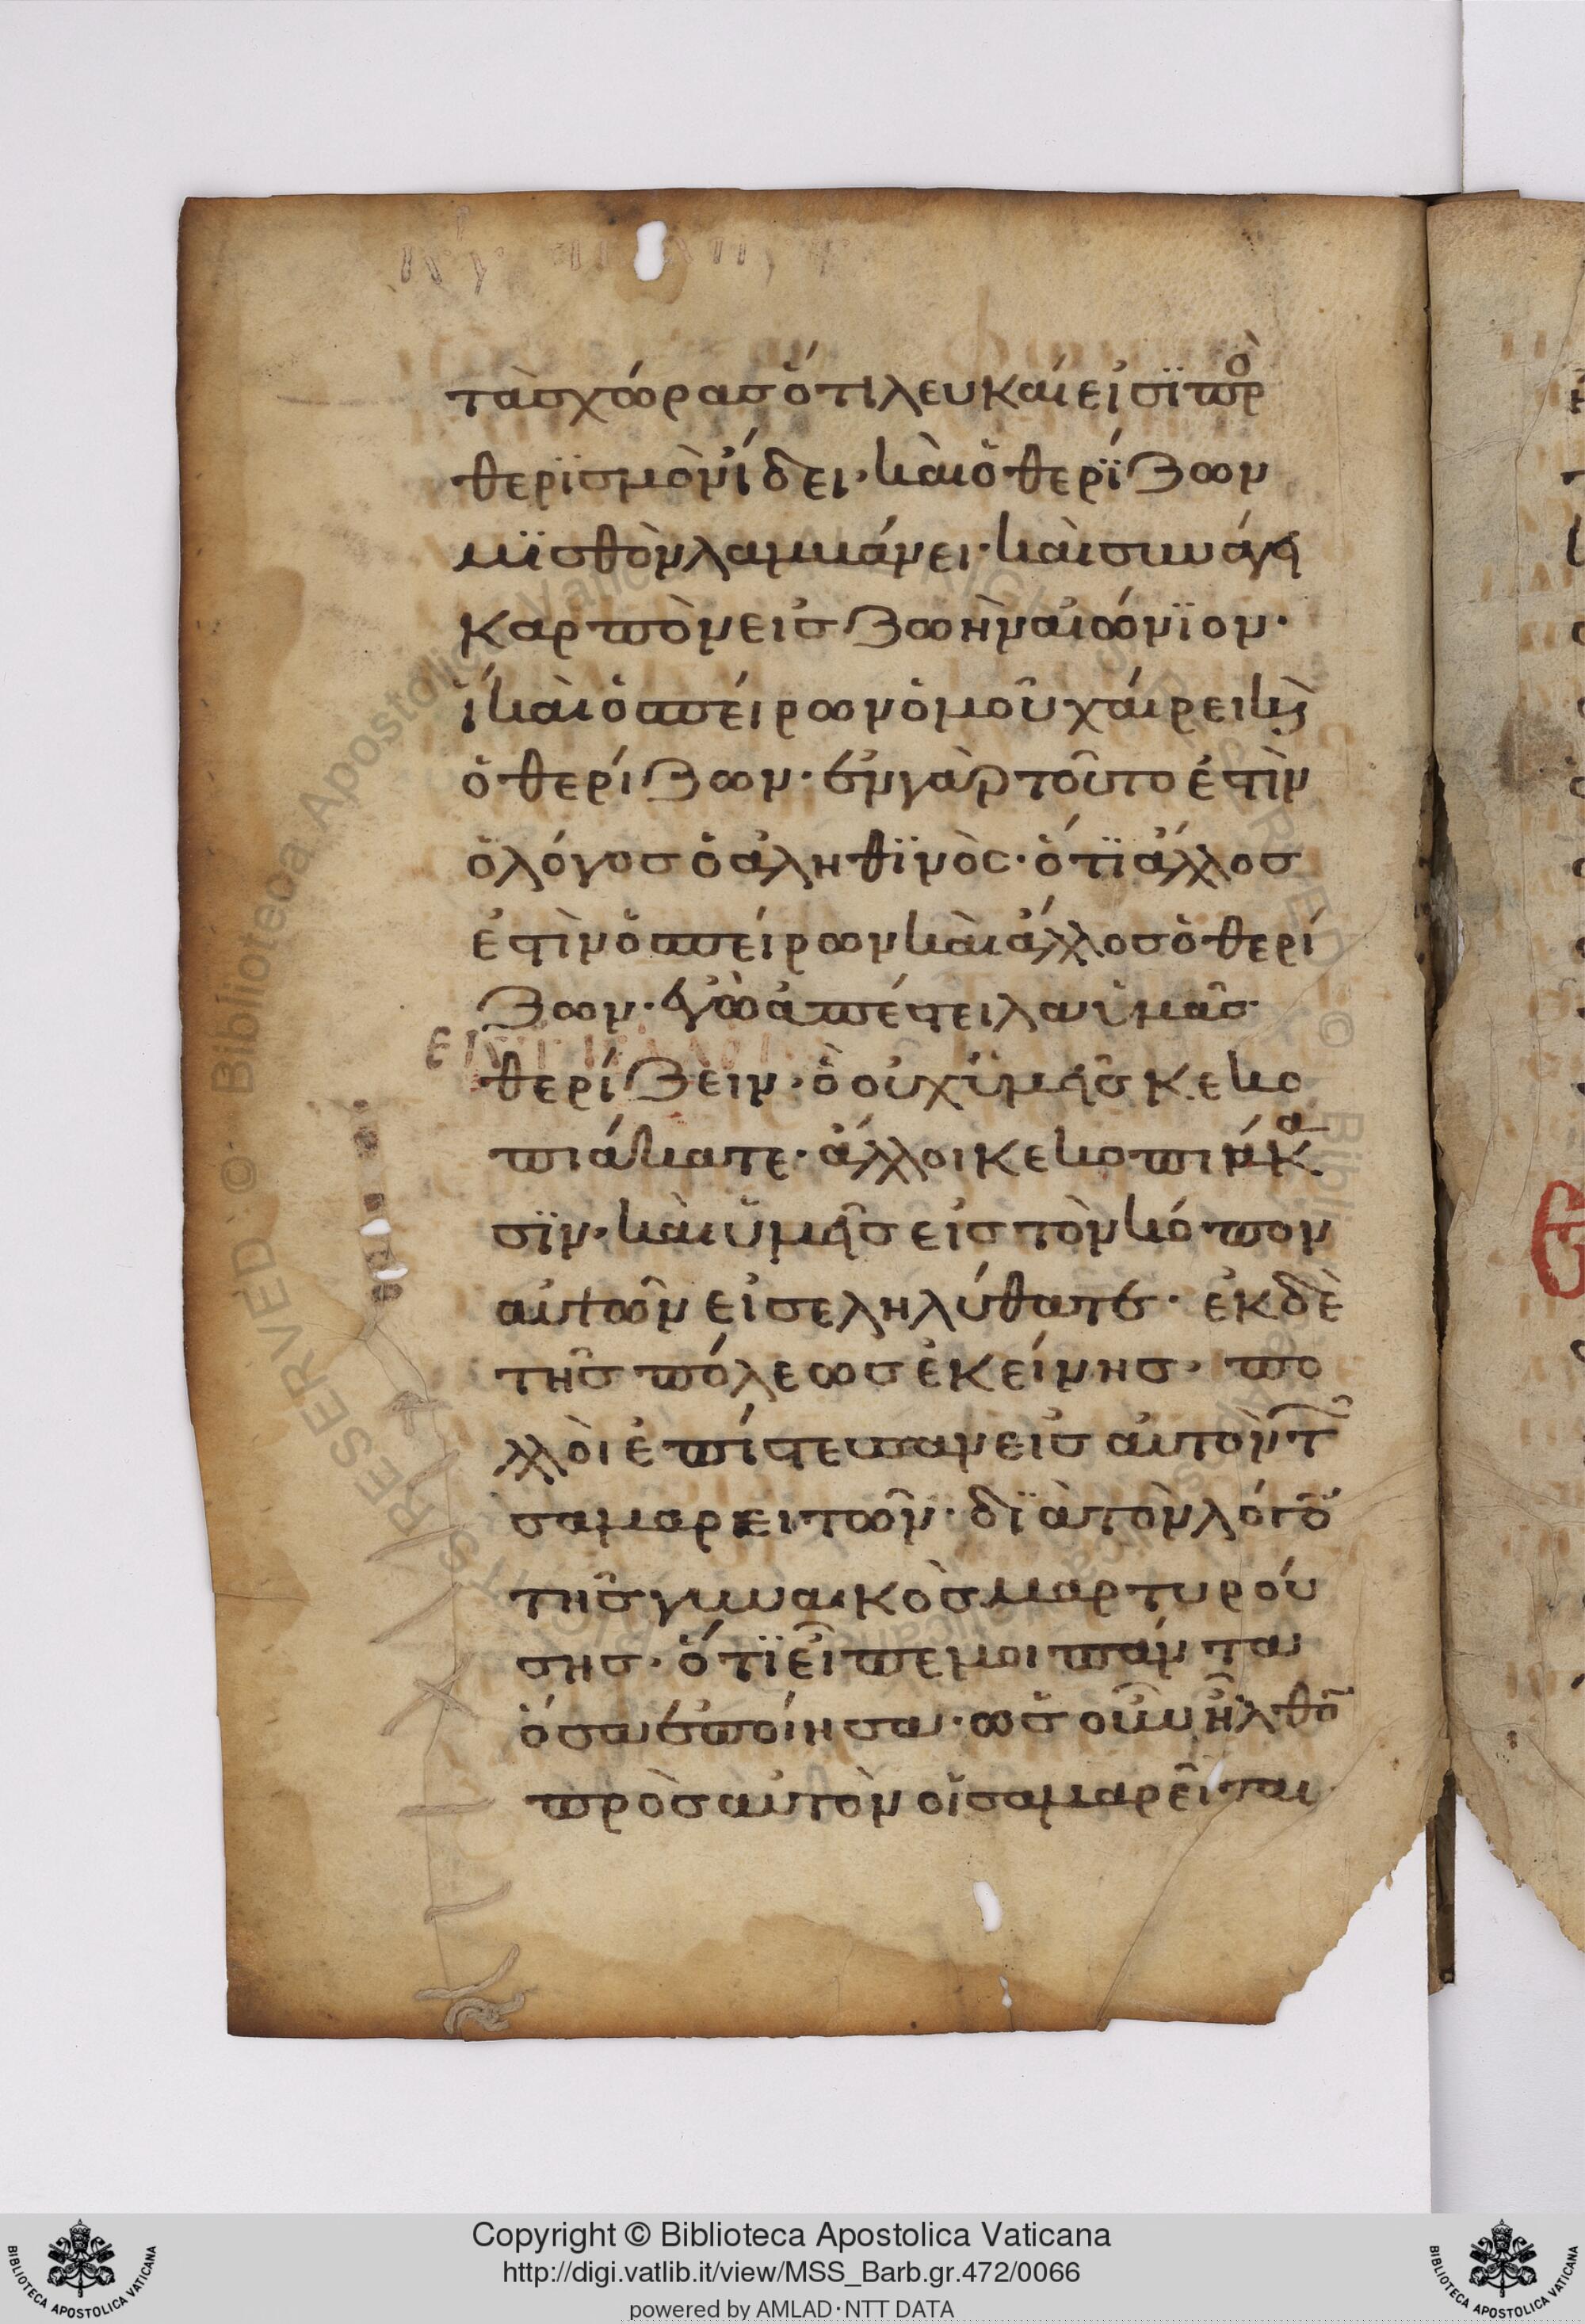 τὰσ χώρασ ὅτι λευκαί εἰσϊ πρὸ
θερϊσμὸν ἴδει· καὶ ὁ θερΐζων
μϊσθὸν λαμμάνει· καὶ συνάγει
καρπὸν εἰσ ζωὴν αἰώνϊον·
ἵ καὶ ὁ σπείρων ὁμοῦ χαίρει κ(αὶ)
ὁ θερίζων· ἐν γὰρ τοῦτο ἐστὶν
ὁ λόγοσ ὁ ἀληθϊνὸς· ὅτϊ ἄλλοσ
ἐστὶν ὁ σπείρων καὶ ἄλλοσ ὁ θερί
ζων· ἐγὼ ἀπέστειλα ὑμᾶσ
θερίζειν· ὃ οὐχ ὑμεῖσ κεκο
πιάκατε· ἄλλοι κεκοπιάκα
σϊν· καὶ ὑμεῖσ εἰσ τὸν κόπον
αὐτῶν εἰσεληλύθατε· ἐκ δὲ
τῆσ πόλεωσ ἐκείνησ· πο
λλοὶ ἐπίστευσαν εἰσ αὐτὸν τ
σαμαρειτῶν· δϊὰ τὸν λόγο
τῆσ γυναικὸσ μαρτυρού
σησ· ὅτϊ εἶπε μοι πάντα
ὅσα ἐποίησα· ὡσ οὖν ἦλθο
πρὸσ αὐτὸν οἱ σαμαρεῖται
Copyright © Biblioteca Apostolica Vaticana
http://digi.vatlib.it/view/MSS_Barb.gr.472/0066
powered by AMLAD·NTT DATA
BIBLIOTECA APOSTOLICA VATICANA
BIBLIOTECA APOSTOLICA VATICANA